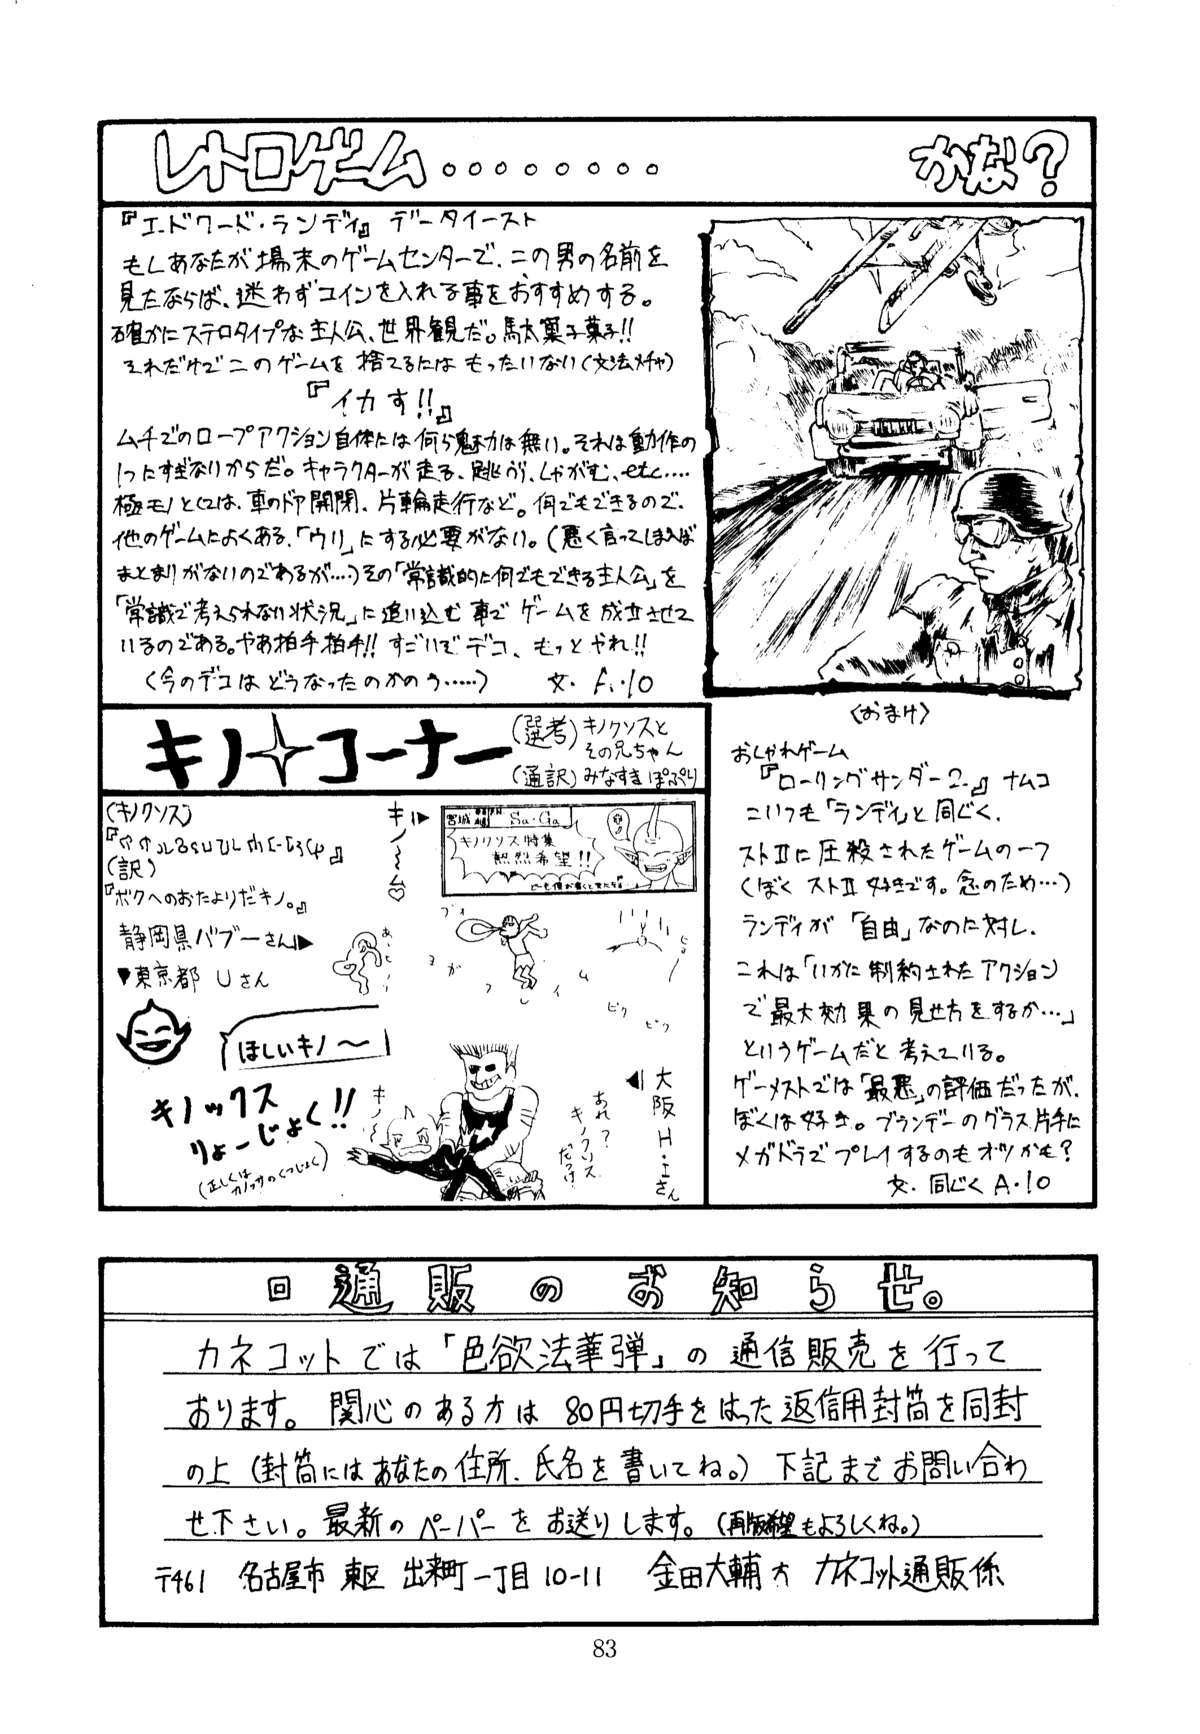 レトロゲーム........ かな?
『エドワード・ランディ』 データイースト
もしあなたが場末のゲームセンターで、この男の名前を
見たならば、迷わずコインを入れる事をおすすめする。
確かにステロタイプな主人公、世界観だ。駄菓子菓子!!
それだけでこのゲームを捨てるにはもったいない(文法メチャ)
『イカす!!』
ムチでのロープアクション自体には何ら魅力は無い。それは動作の
1つにすぎないからだ。キャラクターが走る、跳ぶ、しゃがむ、etc....
極モノとしては、車のドア開閉、片輪走行など。何でもできるので、
他のゲームによくある、「ウリ」にする必要がない。(悪く言ってしまえば
まとまりがないのであるが...)その「常識的に何でもできる主人公」を
「常識で考えられない状況」に追い込む事でゲームを成立させて
いるのである。やあ拍手拍手!! すごいぞデコ、もっとやれ!!
(今のデコはどうなったのかのう......) 文・A・10
<おまけ>
おしゃれゲーム
『ローリングサンダー2』 ナムコ
こいつも「ランディ」と同じく、
ストⅡに圧殺されたゲームの一つ
(ぼくストⅡ好きです。念のため...)
ランディが「自由」なのに対し、
これは「いかに制約されたアクション
で最大効果の見せ方をするか...」
というゲームだと考えている。
ゲーメストでは「最悪」の評価だったが、
ぼくは好き。ブランデーのグラス片手に
メガドラでプレイするのもオツかも?
文・同じくA・10
キノ コーナー
(選考)キノクソスと
その兄ちゃん
(通訳)みなすきぽぷり
(キノクソス)
(訳)
『ボクへのおたよりだキノ。』
静岡県バブーさん▶
▼東京都 Uさん
キノ〜ム♡
宮城 Sa・Ga
キノクソス特集
熱烈希望!!
ほしいキノ〜
キノックス
りょーじょく!!
キノ〜
あれ?
キノクソス
だっけ
◀大阪H・Iさん
ピク ピク
回通販のお知らせ。
カネコットでは「色欲法華弾」の通信販売を行って
おります。関心のある方は80円切手をはった返信用封筒を同封
の上(封筒にはあなたの住所、氏名を書いてね。)下記までお問い合わ
せ下さい。最新のペーパーをお送りします。(再版希望もよろしくね。)
〒461 名古屋市東区出来町一丁目10-11 金田大輔方 カネコット通販係
83